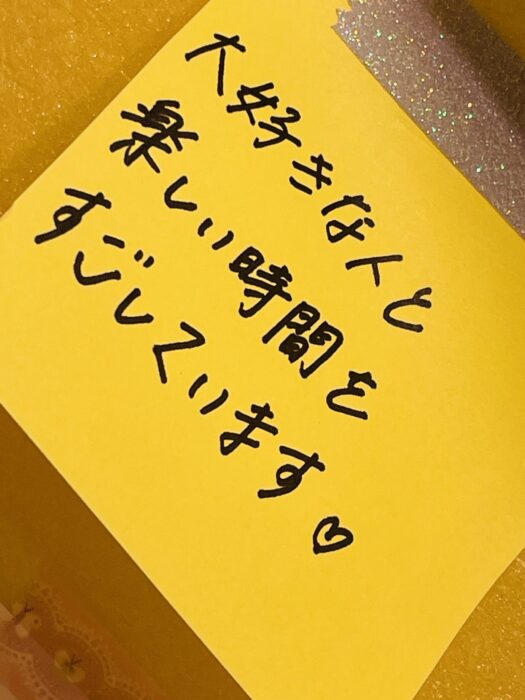 大好きな人と
楽しい時間を
すごしています♡